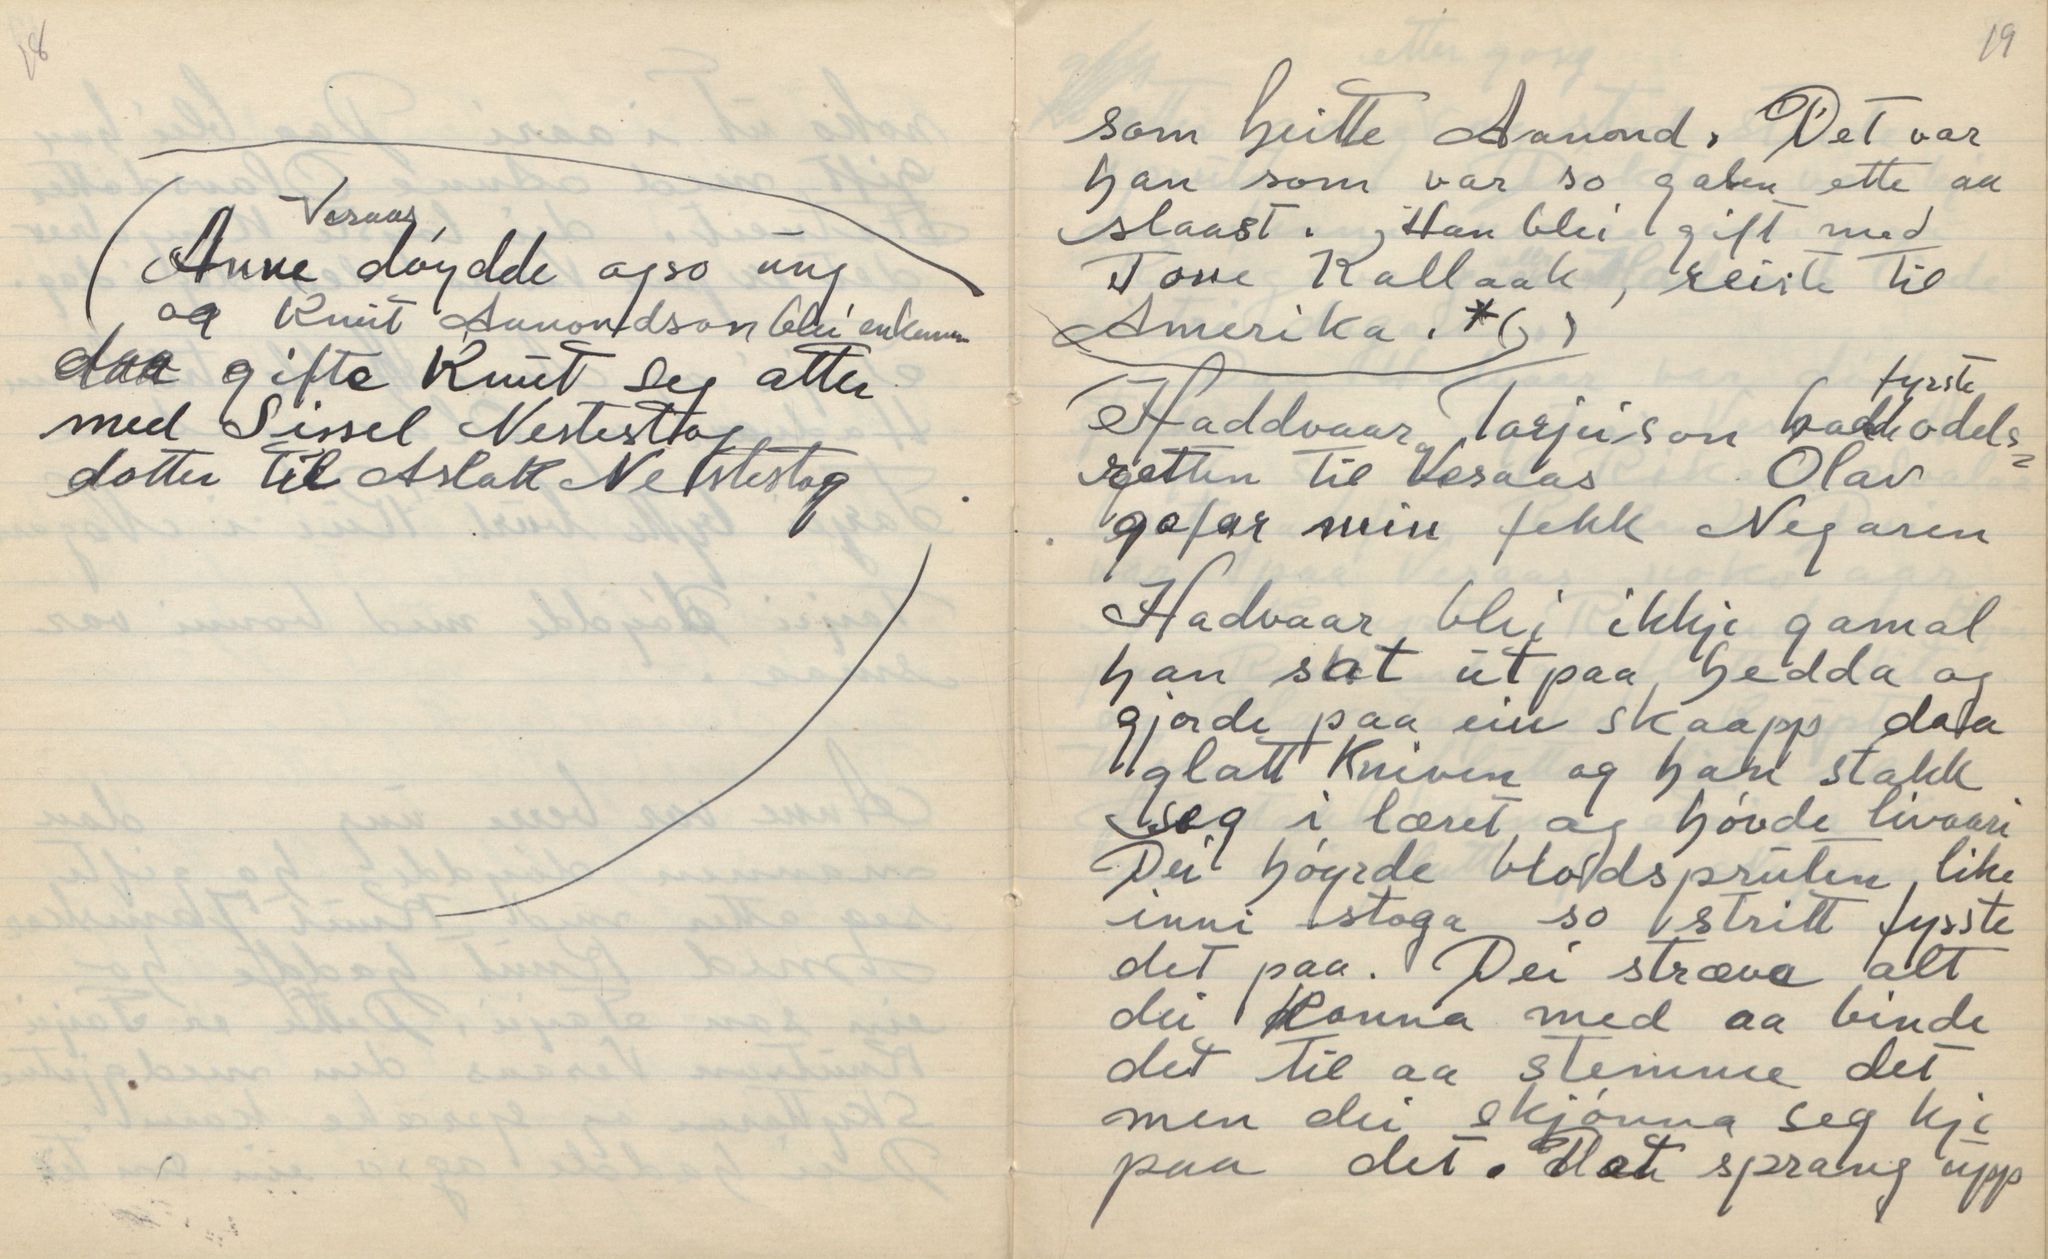 18
Vesaas
(Anne döydde ogso ung
og Knut Aanondson blei enkemann
daa gifte Knut seg atter
med Sissel Nestestog
dotter til Aslak Nestestog
19
som heitte Aanond. Det var
han som var so galen ette aa
slaast. Han blei gift med
Tone Kallaak, reiste til
Amerika. *()
fyrste
Haddvaar Tarjeison hadde odels=
retten til Vesaas Olav
gofar min fekk Negaren
Hadvaar blei ikkje gamal
han sat ut paa hedda og
gjorde paa ein skaapp daa
glatt kniven og han stakk
seg i læret og hövde livaari
Dei höyrde blodspruten like
inni stoga so stritt fysste
det paa. Dei stræva alt
dei konna med aa binde
det til aa stemme det
men dei skjönna seg kje
paa det. Han sprang upp